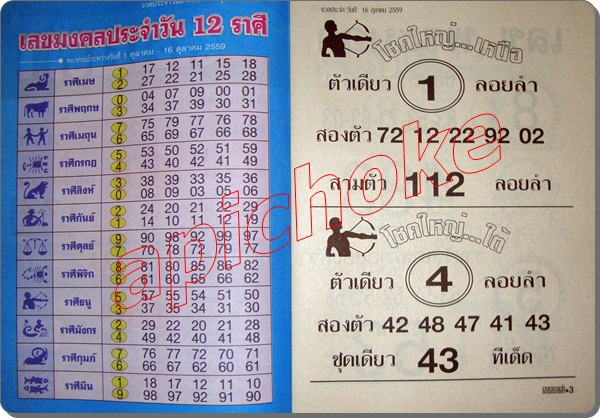 เลขมงคลประจำวัน 12 ราศี
พยากรณ์ระหว่างวันที่ 1 ตุลาคม - 16 ตุลาคม 2559
ราศีเมษ 1 17 12 11 15 18
2 27 22 21 25 28
ราศีพฤษภ 0 04 07 09 00 01
3 34 37 39 30 31
ราศีเมถุน 7 75 79 77 76 78
6 65 69 67 66 68
ราศีกรกฎ 5 53 50 59 51 54
4 43 40 42 41 49
ราศีสิงห์ 3 38 39 33 35 36
0 08 09 03 05 06
ราศีกันย์ 2 24 20 21 22 29
1 14 10 11 12 19
ราศีตุลย์ 9 90 98 92 99 97
7 70 78 72 79 77
ราศีพิจิก 8 81 80 85 86 82
6 61 60 65 66 62
ราศีธนู 5 57 55 54 51 50
3 37 35 34 31 30
ราศีมังกร 2 29 22 28 20 24
4 49 42 48 40 44
ราศีกุมภ์ 7 76 77 72 70 71
6 66 67 62 60 61
ราศีมีน 1 18 10 12 11 19
9 98 90 92 91 90
งวดประจำ วันที่ 16 ตุลาคม 2559
โชคใหญ่...เหนือ
ตัวเดียว 1 ลอยลำ
สองตัว 72 12 22 92 02
สามตัว 112 ลอยลำ
โชคใหญ่...ใต้
ตัวเดียว 4 ลอยลำ
สองตัว 42 48 47 41 43
ชุดเดียว 43 ทีเด็ด
apichoke